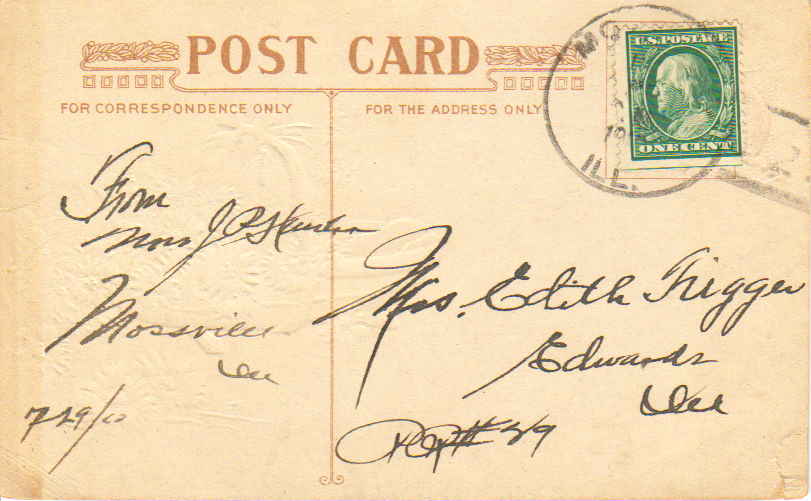 POST CARD
FOR CORRESPONDENCE ONLY
FOR THE ADDRESS ONLY
U.S. POSTAGE
ONE CENT
MO
19
ILL.
From
Mrs J P
Mossville
Ill
7-29/10
Mrs. Edith Trigger
Edwards
Ill
# 29